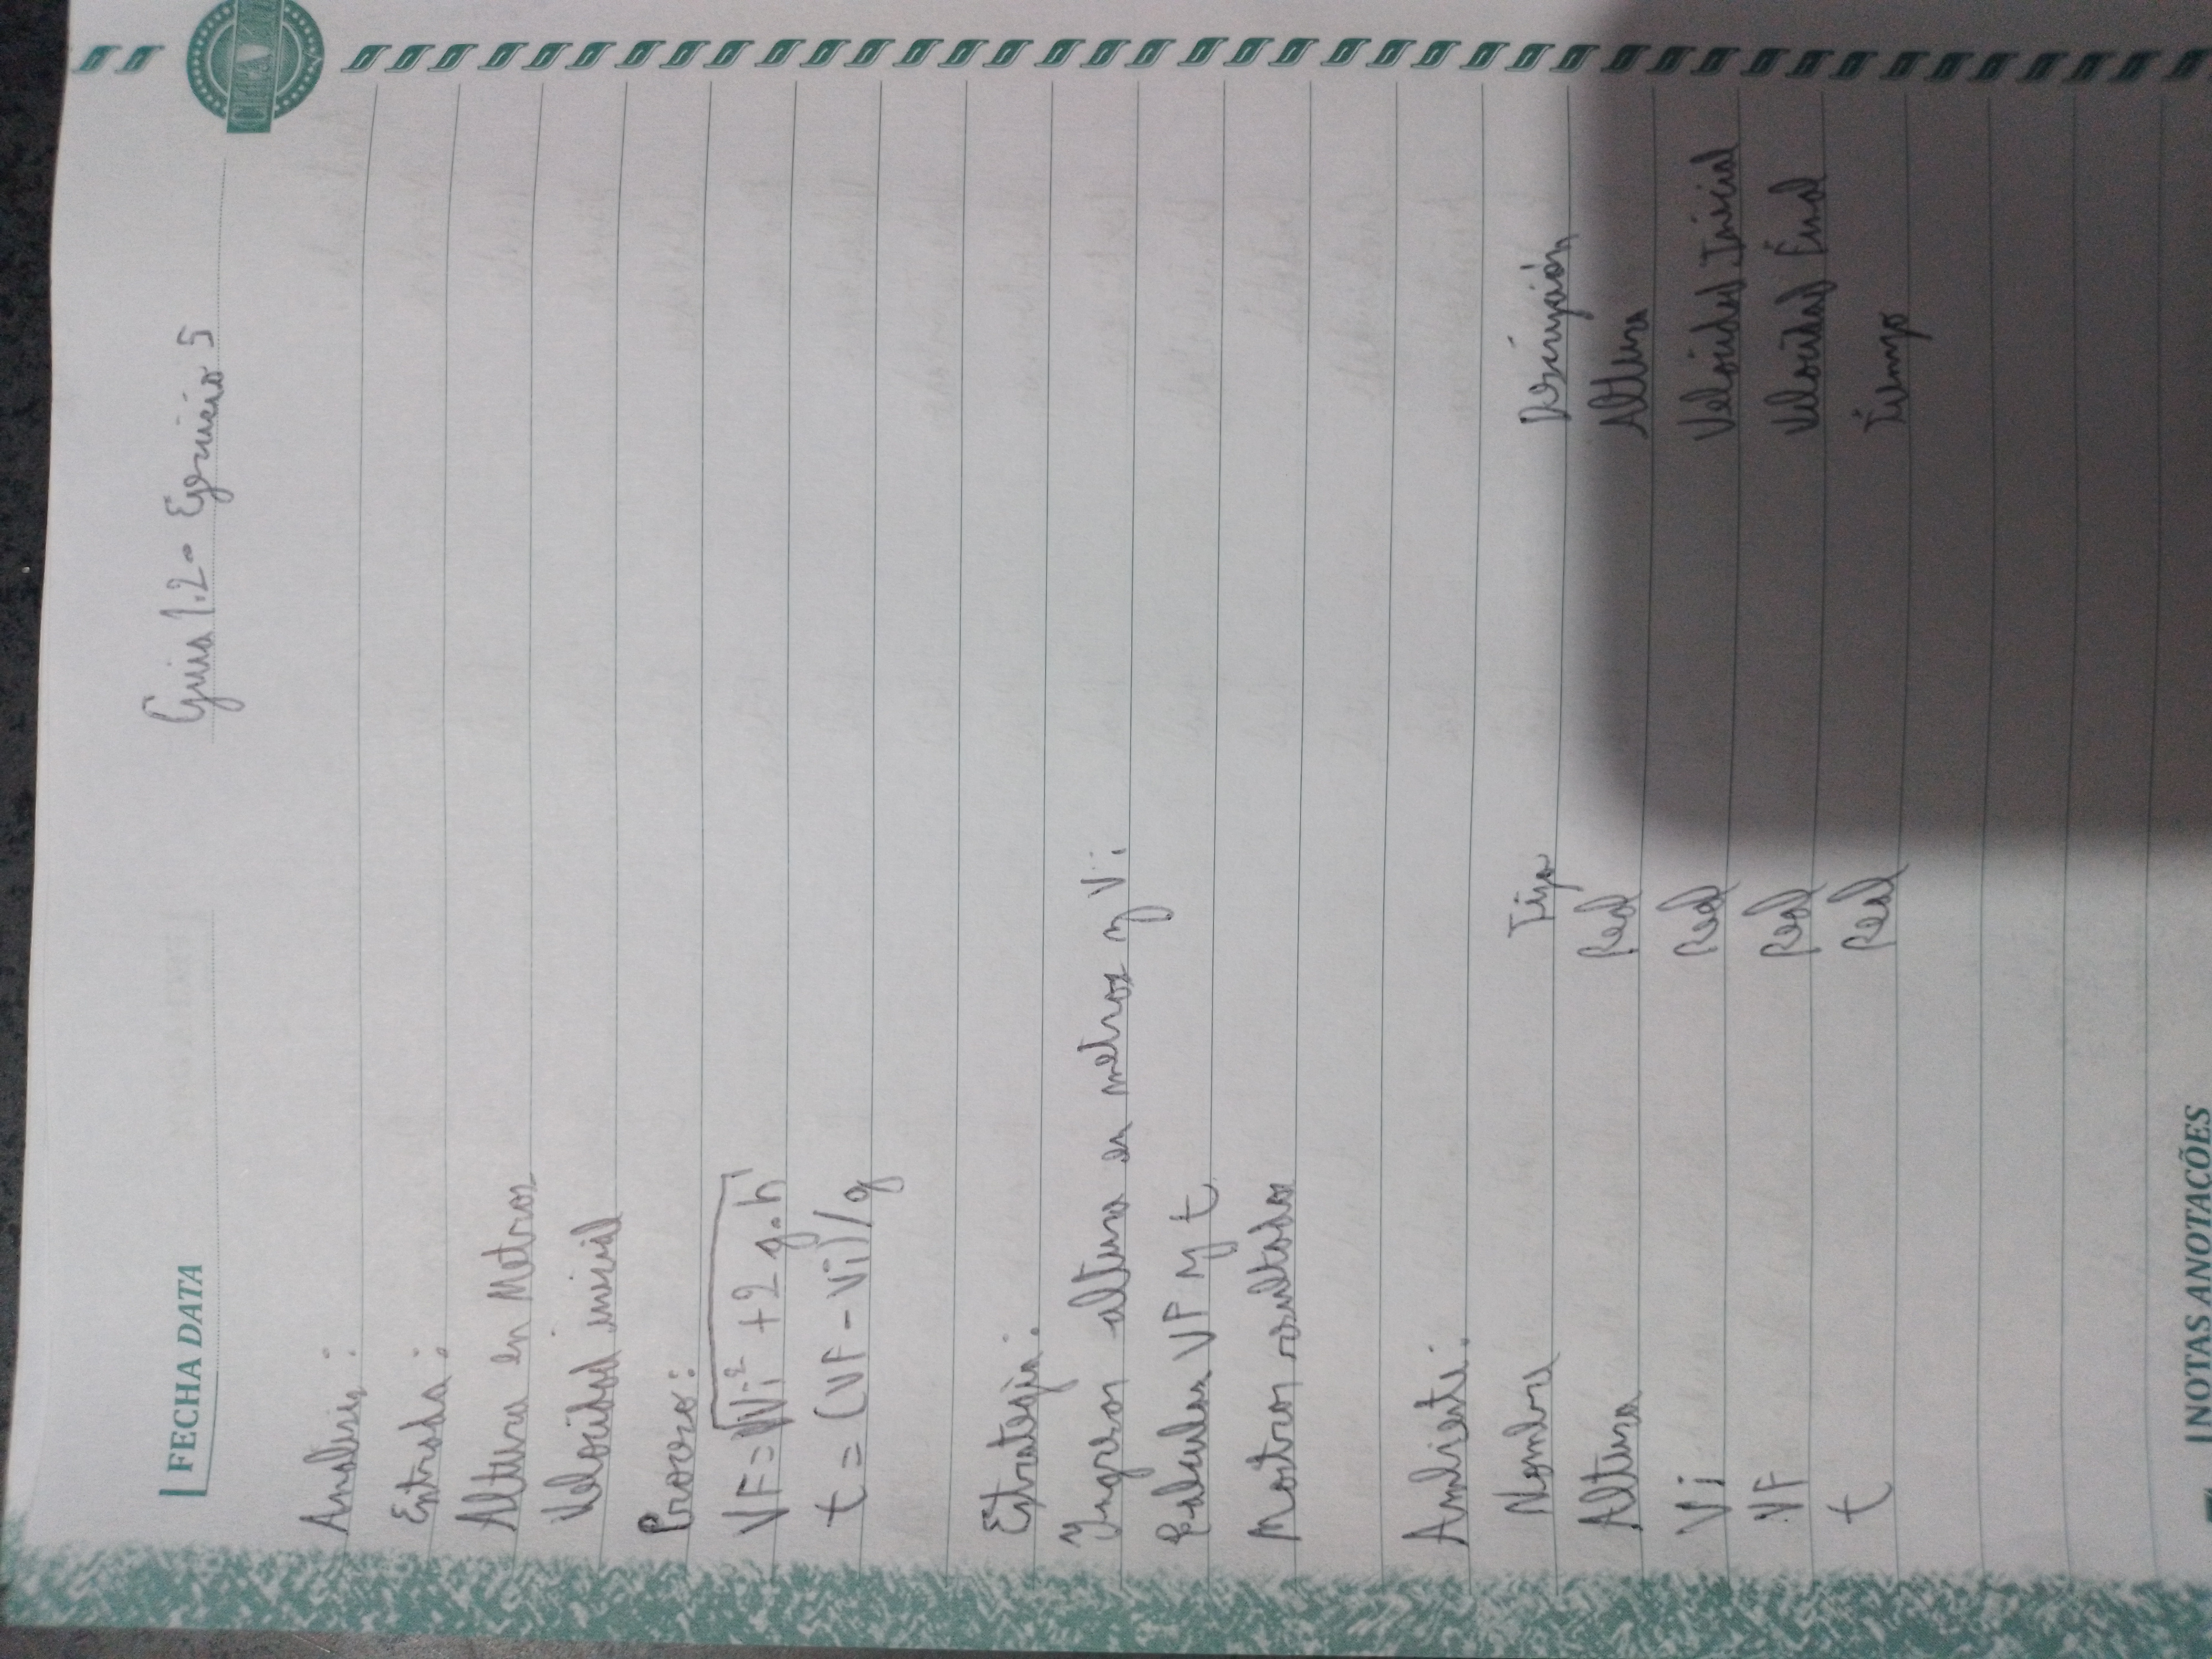 FECHA DATA
Guia 1.2 - Ejercicio 5
Analisis:
Entrada:
Altura en Metros
Velocidad inicial
Proceso:
VF = √Vi² + 2 g . h
t = (VF - Vi)/g
Estrategia:
Ingresar altura en metros y Vi
Calcular VF y t
Mostrar resultados
Ambiente:
Nombre Tipo Descripción
Altura Real Altura
Vi Real Velocidad Inicial
VF Real Velocidad Final
t Real tiempo
NOTAS ANOTAÇÕES